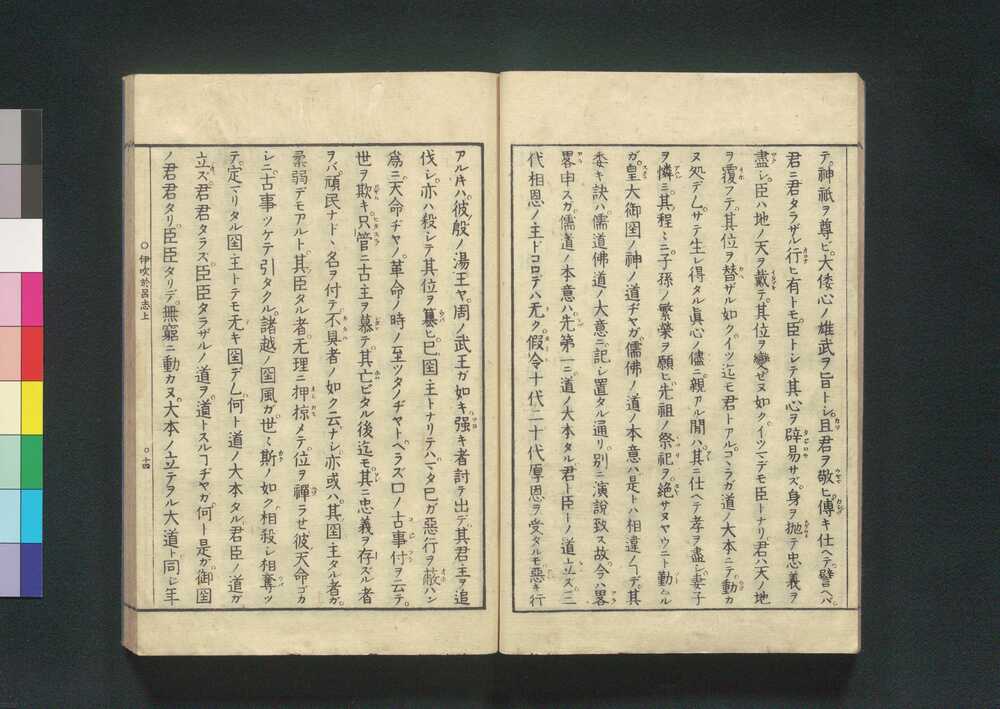 テ。神祇ヲ尊ビ。大倭心ノ雄武ヲ旨トシ。且君ヲ敬ヒ傅キ仕ヘテ。譬ヘバ
君ニ君タラザル行ヒ有トモ。臣トシテ其心ヲ辟易サズ。身ヲ抛テ忠義ヲ
盡シ。臣ハ地ノ天ヲ戴テ。其位ヲ變ゼヌ如ク。イツマデモ臣トナリ。君ハ天ノ地
ヲ覆フテ。其位ヲ替ザル如ク。イツ迄モ君トアルコヽラガ道ノ大本ニテ。動カ
ヌ処デム。サテ生レ得タル眞心ノ儘ニ。親アル間ハ其ニ仕ヘテ孝ヲ盡シ。妻子
ヲ憐ミ。其程ミニ子孫ノ繁榮ヲ願ヒ。先祖ノ祭祀ヲ絶サヌヤウニト勤ムル
ガ。皇大御国ノ神ノ道ヂヤガ。儒佛ノ道ノ本意ハ是トハ相違ノヿデ。其
委キ訣ハ。儒道佛道ノ大意ニ記シ置タル通リ。別ニ演説致ス故。今ハ畧
畧申スガ。儒道ノ本意ハ。先第一ニ道ノ大本タル君ト臣トノ道立ズ。二
代相恩ノ主ドコロデハ无ク。假令十代二十代厚恩ヲ受タルモ。惡キ行
アル片ハ。彼殷ノ湯王ヤ。周ノ武王ガ如キ強キ者討テ出デ。其君主ヲ追
伐シ。亦ハ殺シテ其位ヲ簒ヒ。已囯主トナリテハ。マタ已ガ惡行ヲ蔽ハン
為ニ。天命ヂヤノ。革命ノ時ノ至ツタノヂヤト。ヘラズ口ノ古事付ヲ云テ。
世ヲ欺キ。只管ニ古主ヲ慕テ。其亡ビタル後迄モ。其ニ忠義ヲ存ズル者
ヲバ。頑民ナドヽ名ヲ付テ。不具者ノ如ク云ナシ。亦或ハ其囯主タル者ガ。
柔弱デモアルト。其臣タル者。无理ニ押掠メテ。位ヲ禪ラせ。彼天命ゴカ
シニ古事ツケテ引タクル。諸越ノ囯風ガ。世ミ斯ノ如ク相殺シ相奪ツ
テ。定マリタル囯主トテモ无キ囯デム。何ト道ノ大本タル君臣ノ道ガ
立ズ。君君タラズ。臣臣タラザルノ道ヲ。道トスルヿヂヤガ。何ト是ガ。御囯
ノ君君タリ。臣臣タリデ。無窮ニ動カヌ。大本ノ立テヲル大道ト同シ年
○伊吹於呂志上
○十四